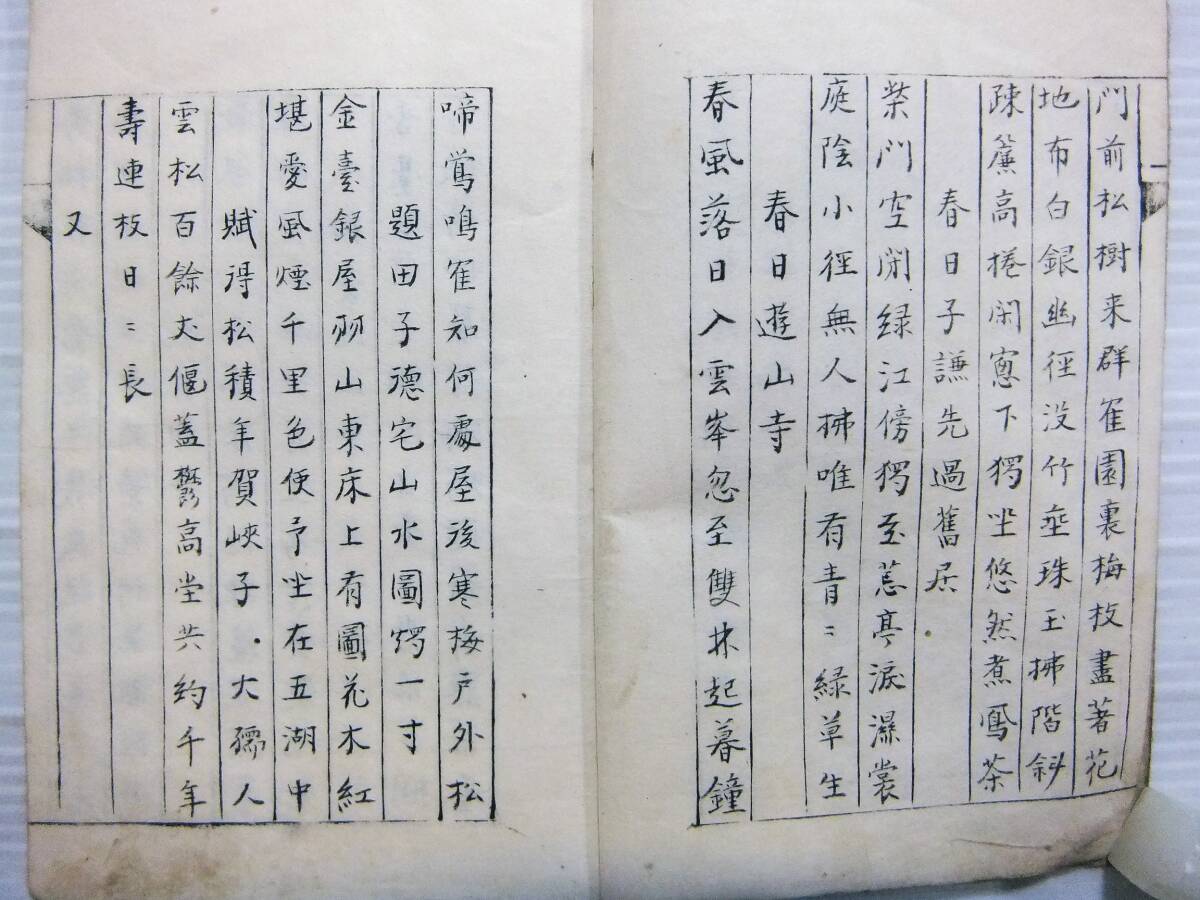 門前松樹来群隺園裏梅枝盡著花
地布白銀幽徑没竹垂珠玉拂階斜
疎簾高捲閑窻下獨坐悠然煮鳳茶
春日子謙先過舊居
柴門空閉緑江傍獨至亭淚濕裳
庭陰小徑無人拂唯有青〻緑草生
春日遊山寺
春風落日入雲峯忽至雙林起暮鐘
啼鶯鳴隺知何處屋後寒梅戸外松
題田子德宅山水圖燭一寸
金臺銀屋山東床上有圖花木紅
堪愛風煙千里色便予坐在五湖中
賦得松積年賀峽子大孺人
雲松百餘丈偃蓋鬱高堂共約千年
壽連枝日〻長
又